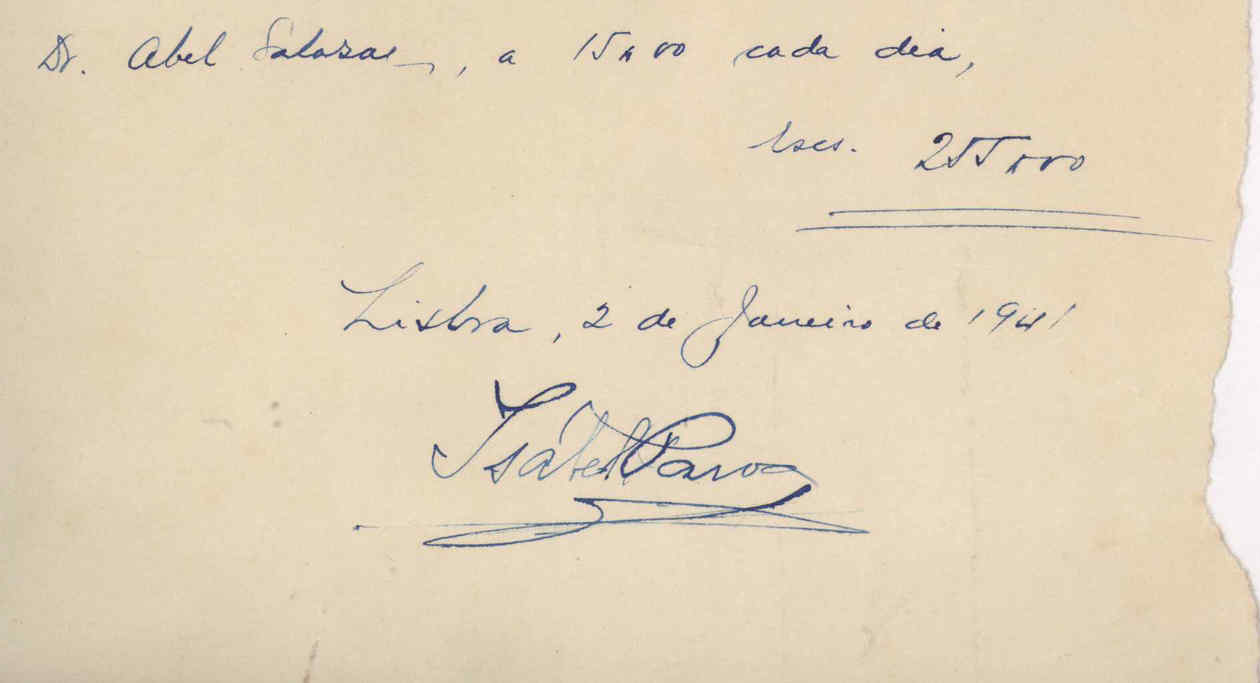 Dr. Abel Salazar, a 15$00 cada dia,
Escs. 255$00
Lisboa, 2 de Janeiro de 1941
Isabel